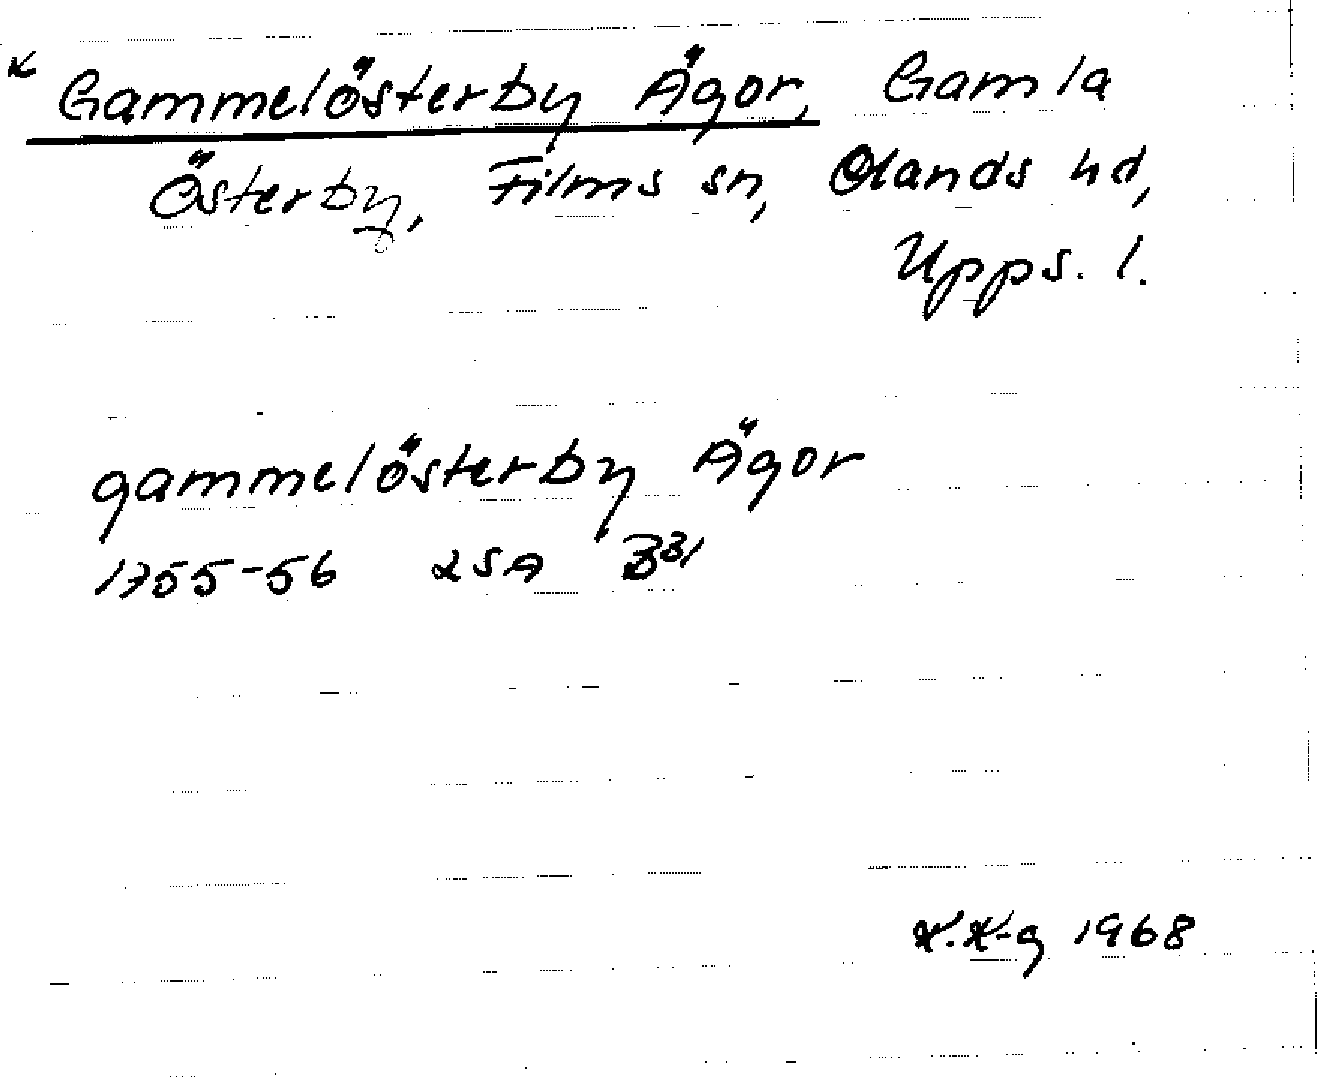 K Gammelösterby Ägor, Gamla
Österby, Films sn, Olands hd,
Upps. l.
gammelösterby Ägor
1755-56 LSA B31
K.K-g 1968